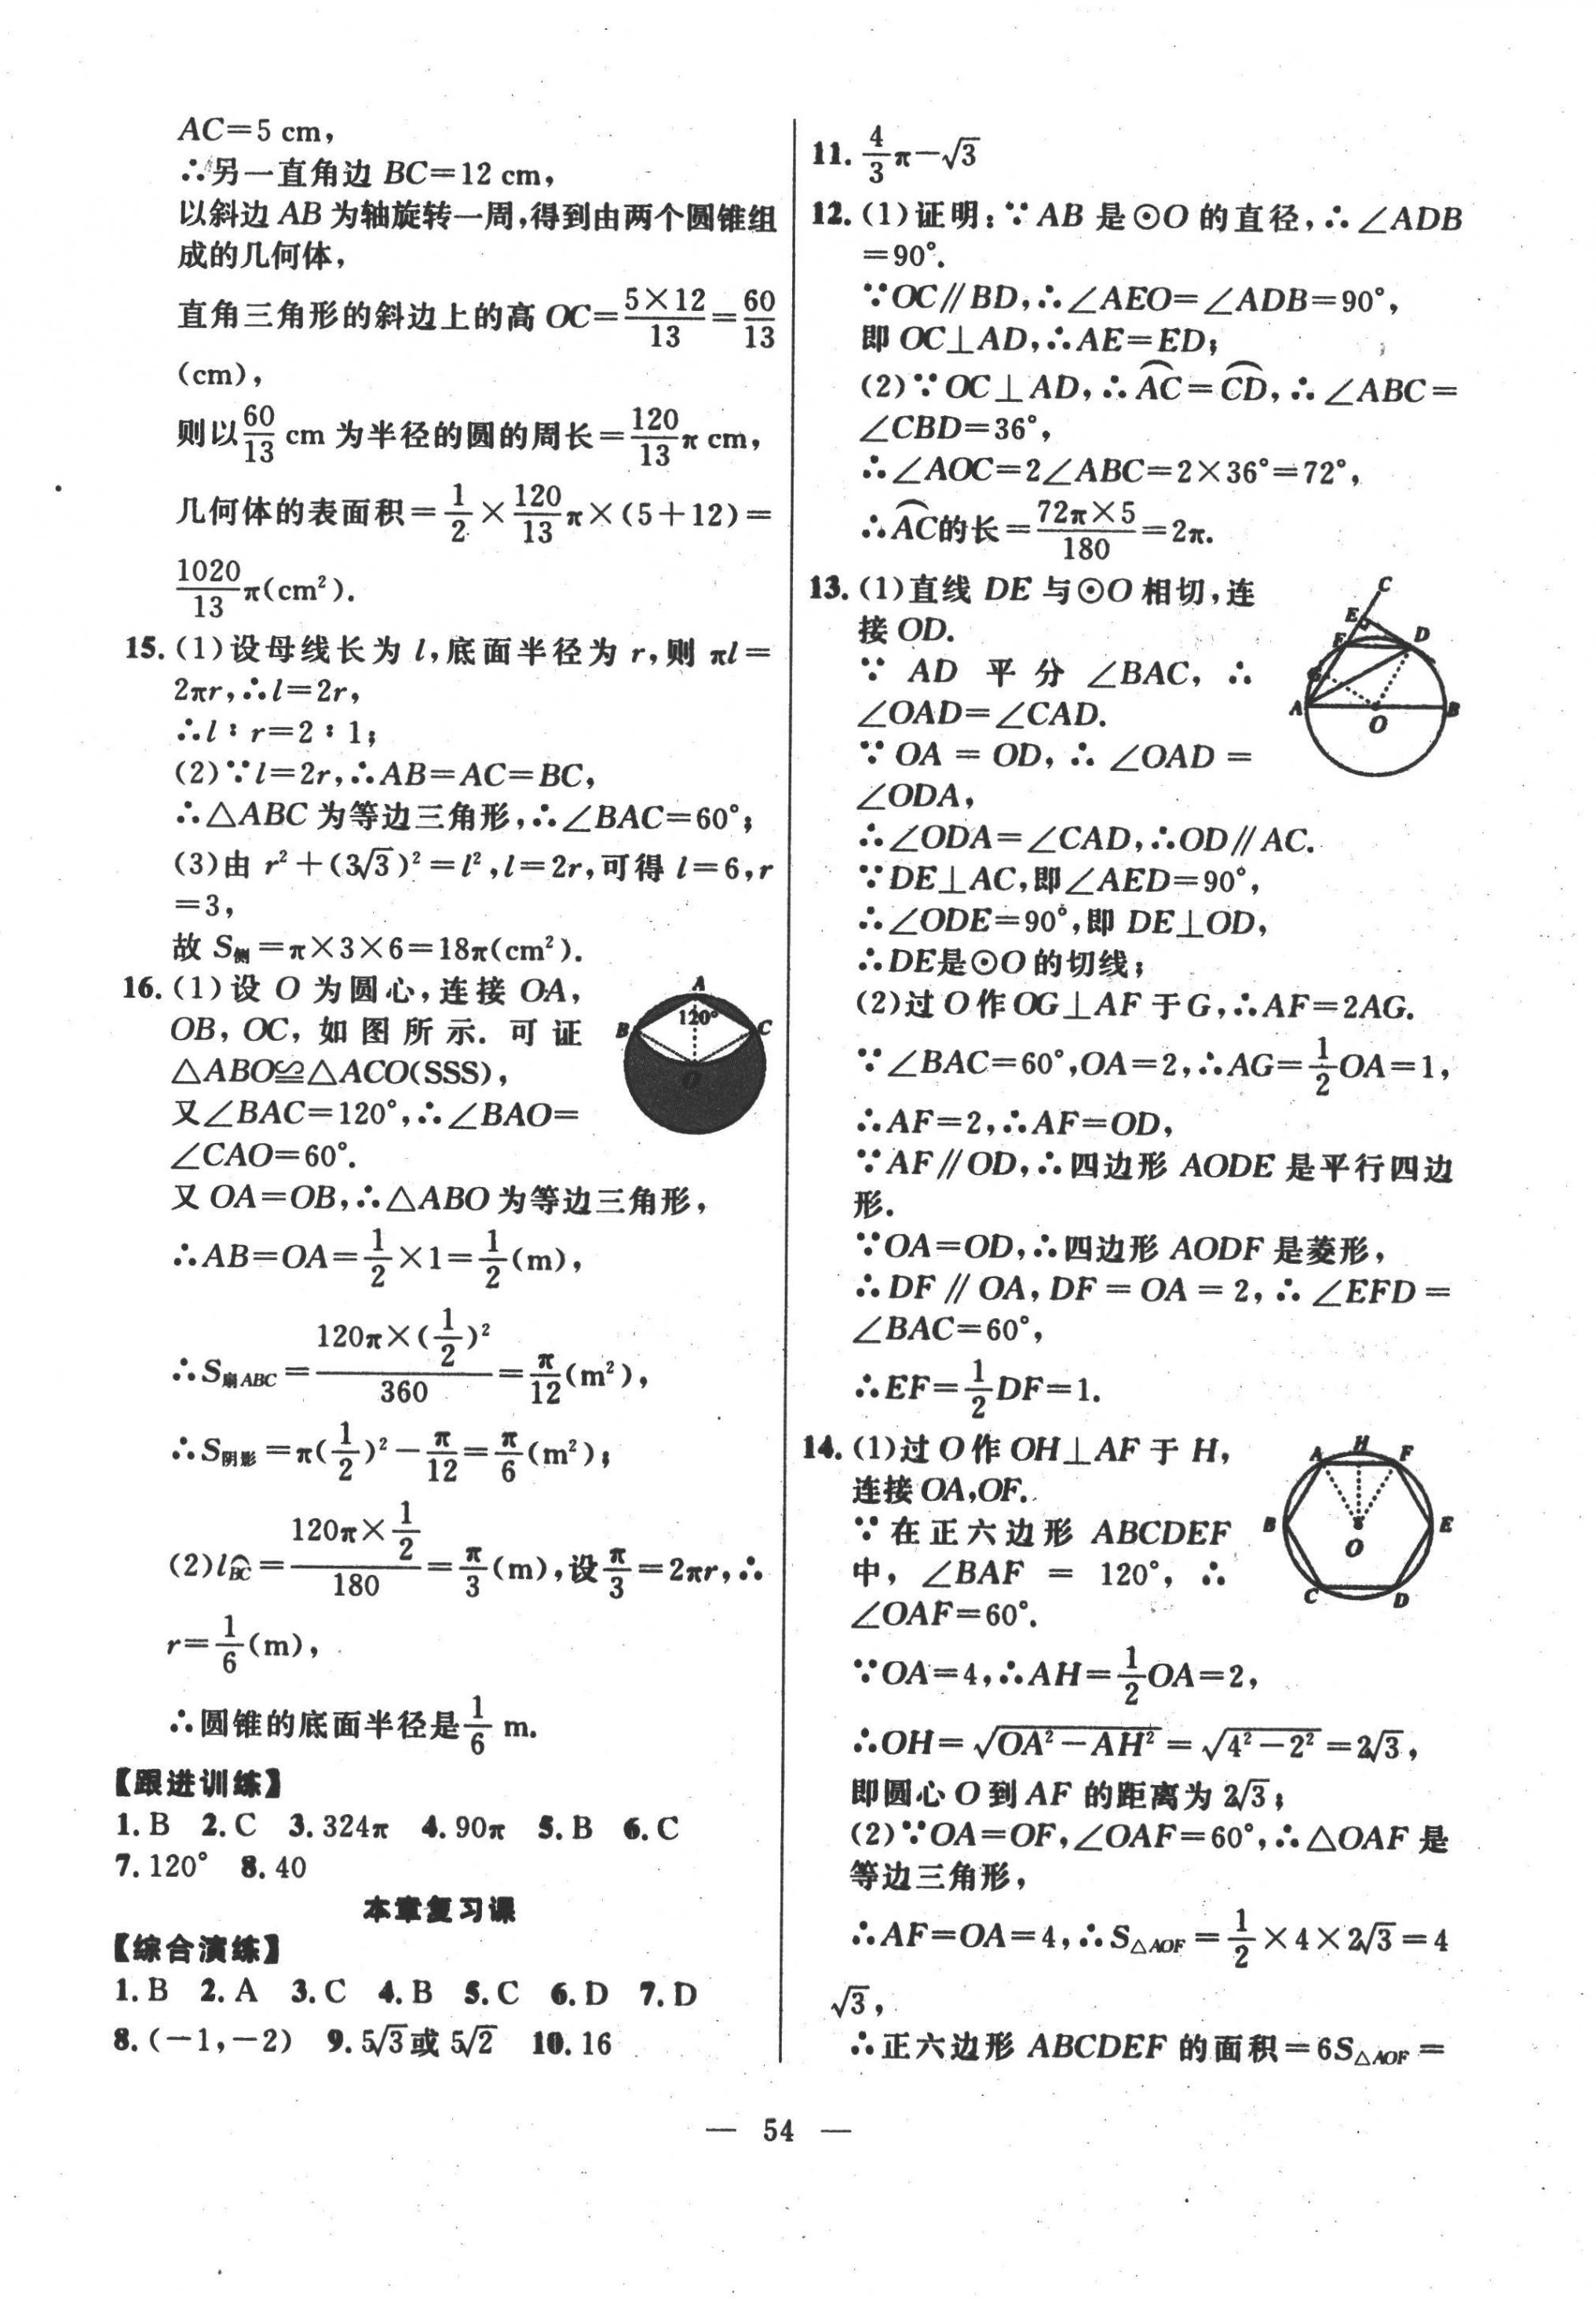 AC=5 cm,
∴另一直角边 BC=12 cm,
以斜边 AB 为轴旋转一周,得到由两个圆锥组
成的几何体,
直角三角形的斜边上的高 OC=\frac{5×12}{13}=\frac{60}{13}
(cm),
则以\frac{60}{13} cm 为半径的圆的周长=\frac{120}{13}π cm,
几何体的表面积=\frac{1}{2}×\frac{120}{13}π×(5+12)=
\frac{1020}{13}π(cm²).
15. (1)设母线长为 l,底面半径为 r,则 πl=
2πr,∴l=2r,
∴l∶r=2∶1;
(2)∵l=2r,∴AB=AC=BC,
∴△ABC 为等边三角形,∴∠BAC=60°;
(3)由 r²+(3√3)²=l²,l=2r,可得 l=6,r
=3,
故 S侧=π×3×6=18π(cm²).
16. (1)设 O 为圆心,连接 OA,
OB, OC, 如图所示. 可证
△ABO≌△ACO(SSS),
又∠BAC=120°,∴∠BAO=
∠CAO=60°.
A
120°
B
C
O
又 OA=OB,∴△ABO 为等边三角形,
∴AB=OA=\frac{1}{2}×1=\frac{1}{2}(m),
∴S扇ABC=\frac{120π×(\frac{1}{2})²}{360}=\frac{π}{12}(m²),
∴S阴影=π(\frac{1}{2})²-\frac{π}{12}=\frac{π}{6}(m²);
(2)l⌒BC=\frac{120π×\frac{1}{2}}{180}=\frac{π}{3}(m),设\frac{π}{3}=2πr,∴
r=\frac{1}{6}(m),
∴圆锥的底面半径是\frac{1}{6} m.
【跟进训练】
1. B 2. C 3. 324π 4. 90π 5. B 6. C
7. 120° 8. 40
本章复习课
【综合演练】
1. B 2. A 3. C 4. B 5. C 6. D 7. D
8. (-1,-2) 9. 5√3或 5√2 10. 16
11. \frac{4}{3}π-√3
12. (1)证明:∵ AB 是⊙O 的直径,∴∠ADB
=90°.
∵OC∥BD,∴∠AEO=∠ADB=90°,
即 OC⊥AD,∴AE=ED;
(2)∵OC⊥AD,∴⌒AC=⌒CD,∴∠ABC=
∠CBD=36°,
∴∠AOC=2∠ABC=2×36°=72°,
∴⌒AC的长=\frac{72π×5}{180}=2π.
13. (1)直线 DE 与⊙O 相切,连
接 OD.
∵ AD 平分 ∠BAC, ∴
∠OAD=∠CAD.
∵ OA = OD, ∴ ∠OAD =
∠ODA,
C
E
F
D
G
A
O
B
∴∠ODA=∠CAD,∴OD∥AC.
∵DE⊥AC,即∠AED=90°,
∴∠ODE=90°,即 DE⊥OD,
∴DE是⊙O 的切线;
(2)过 O 作 OG⊥AF 于 G,∴AF=2AG.
∵∠BAC=60°,OA=2,∴AG=\frac{1}{2}OA=1,
∴AF=2,∴AF=OD,
∵AF∥OD,∴四边形 AODE 是平行四边
形.
∵OA=OD,∴四边形 AODF 是菱形,
∴DF∥OA,DF=OA=2,∴∠EFD=
∠BAC=60°,
∴EF=\frac{1}{2}DF=1.
14. (1)过 O 作 OH⊥AF 于 H,
连接 OA,OF.
∵在正六边形 ABCDEF
中, ∠BAF = 120°, ∴
∠OAF=60°.
A
H
F
B
E
O
C
D
∵OA=4,∴AH=\frac{1}{2}OA=2,
∴OH=√(OA²-AH²)=√(4²-2²)=2√3,
即圆心 O 到 AF 的距离为 2√3;
(2)∵OA=OF,∠OAF=60°,∴△OAF 是
等边三角形,
∴AF=OA=4,∴S△AOF=\frac{1}{2}×4×2√3=4
√3,
∴正六边形 ABCDEF 的面积=6S△AOF=
— 54 —